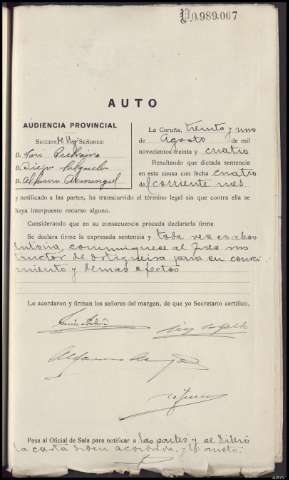 0.989.067
AUTO
AUDIENCIA PROVINCIAL
Señores:
D. José
D. Diego
D. Alfonso
La Coruña, treinta y uno
de Agosto de mil
novecientos treinta y cuatro
Resultando que dictada sentencia
en esta causa con fecha cuatro
del corriente mes
y notificado a las partes, ha transcurrido el término legal sin que contra ella se
haya interpuesto recurso alguno.
Considerando que en su consecuencia procede declararla firme
Se declara firme la expresada sentencia y
comuníquese al Juez ins
tructor de Ortigueira para su conoci
miento y demás efectos
Lo acordaron y firman los señores del margen, de que yo Secretario certifico.
Pasa al Oficial de Sala para notificar a las partes y se libró
la carta orden acordada,